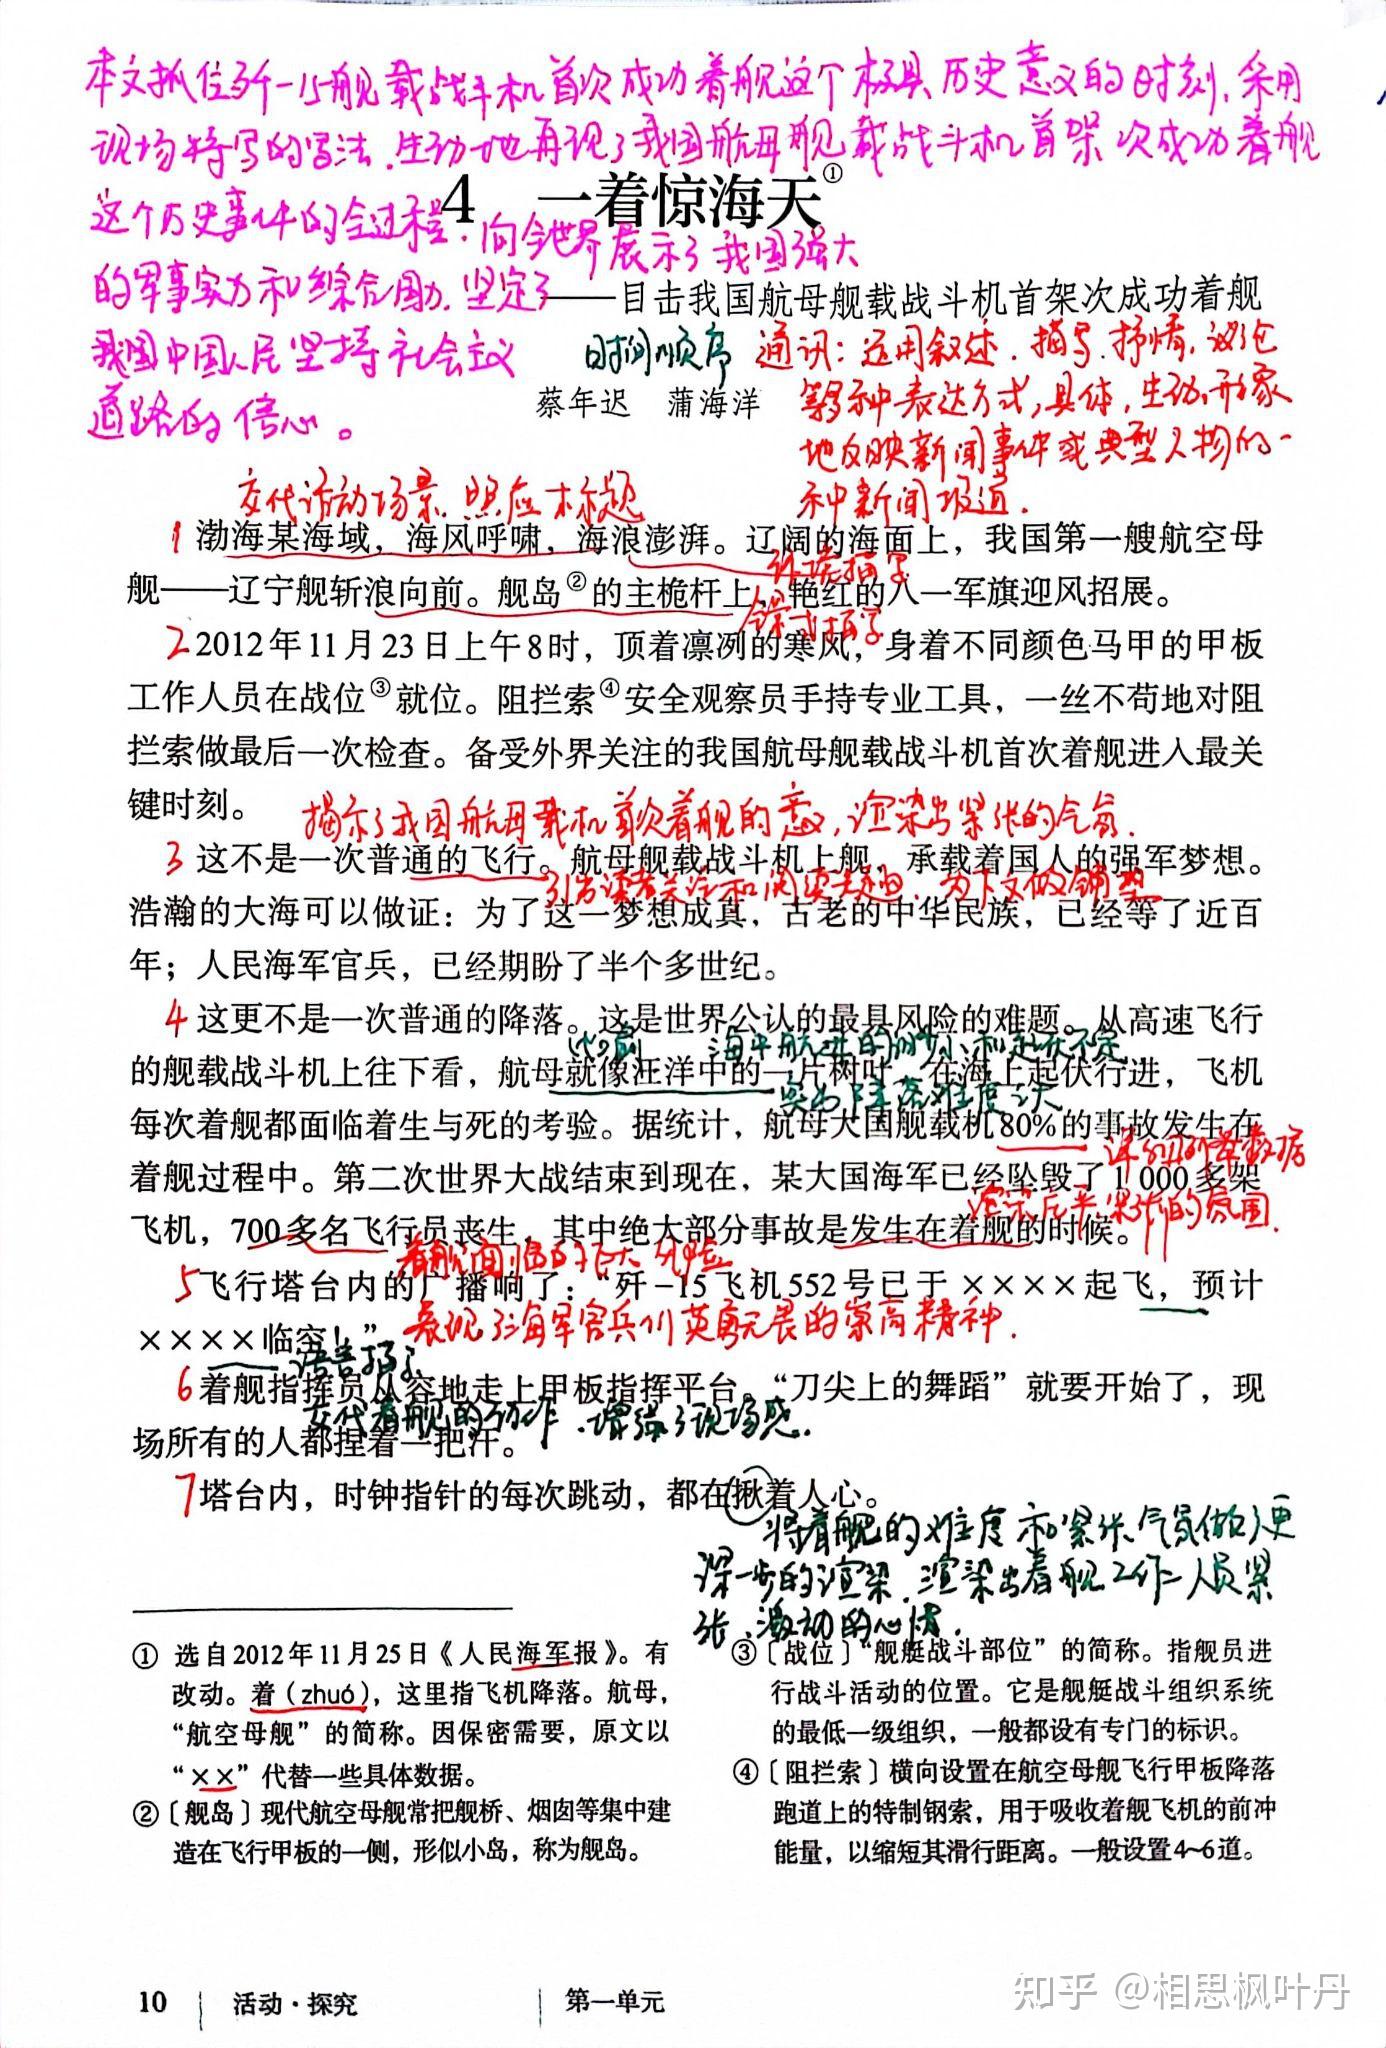 本文抓住歼-15舰载战斗机首次成功着舰这个极具历史意义的时刻，采用
现场特写的写法，生动地再现了我国航母舰载战斗机首架次成功着舰
4 一着惊海天①
这个历史事件的全过程，向全世界展示了我国强大
的军事实力和综合国力，坚定了
——目击我国航母舰载战斗机首架次成功着舰
我国中国人民坚持社会主义
道路的信心。
时间顺序
通讯：运用叙述、描写、抒情、议论
等多种表达方式，具体，生动，形象
地反映新闻事件或典型人物的一
种新闻报道.
蔡年迟 蒲海洋
交代活动场景，照应标题
1 渤海某海域，海风呼啸，海浪澎湃。辽阔的海面上，我国第一艘航空母
环境描写
舰——辽宁舰斩浪向前。舰岛②的主桅杆上，艳红的八一军旗迎风招展。
全景式描写
2 2012年11月23日上午8时，顶着凛冽的寒风，身着不同颜色马甲的甲板
工作人员在战位③就位。阻拦索④安全观察员手持专业工具，一丝不苟地对阻
拦索做最后一次检查。备受外界关注的我国航母舰载战斗机首次着舰进入最关
键时刻。
揭示了我国航母载机首次着舰的意义，渲染出紧张的气氛.
3 这不是一次普通的飞行。航母舰载战斗机上舰，承载着国人的强军梦想。
引发读者关注和阅读兴趣，为下文做铺垫
浩瀚的大海可以做证：为了这一梦想成真，古老的中华民族，已经等了近百
年；人民海军官兵，已经期盼了半个多世纪。
4 这更不是一次普通的降落。这是世界公认的最具风险的难题。从高速飞行
比喻 海中航进的渺小和起伏不定
的舰载战斗机上往下看，航母就像汪洋中的一片树叶，在海上起伏行进，飞机
突出降落难度之大
每次着舰都面临着生与死的考验。据统计，航母大国舰载机80%的事故发生在
详细的列举数据
着舰过程中。第二次世界大战结束到现在，某大国海军已经坠毁了1 000多架
渲染了紧张的氛围.
飞机，700多名飞行员丧生，其中绝大部分事故是发生在着舰的时候。
着舰面临的巨大风险
5 飞行塔台内的广播响了：“歼-15飞机552号已于××××起飞，预计
××××临空！”
表现了海军官兵们英勇无畏的崇高精神.
语言描写
6 着舰指挥员从容地走上甲板指挥平台。“刀尖上的舞蹈”就要开始了，现
交代着舰的动作，增强了现场感.
场所有的人都捏着一把汗。
7 塔台内，时钟指针的每次跳动，都在揪着人心。
将着舰的难度和紧张气氛做了更
深一步的渲染，渲染出着舰工作人员紧
张、激动的心情.
① 选自2012年11月25日《人民海军报》。有
改动。着（zhuó），这里指飞机降落。航母，
“航空母舰”的简称。因保密需要，原文以
“××”代替一些具体数据。
②〔舰岛〕现代航空母舰常把舰桥、烟囱等集中建
造在飞行甲板的一侧，形似小岛，称为舰岛。
③〔战位〕“舰艇战斗部位”的简称。指舰员进
行战斗活动的位置。它是舰艇战斗组织系统
的最低一级组织，一般都设有专门的标识。
④〔阻拦索〕横向设置在航空母舰飞行甲板降落
跑道上的特制钢索，用于吸收着舰飞机的前冲
能量，以缩短其滑行距离。一般设置4~6道。
10 活动·探究 第一单元
知乎 @相思枫叶丹